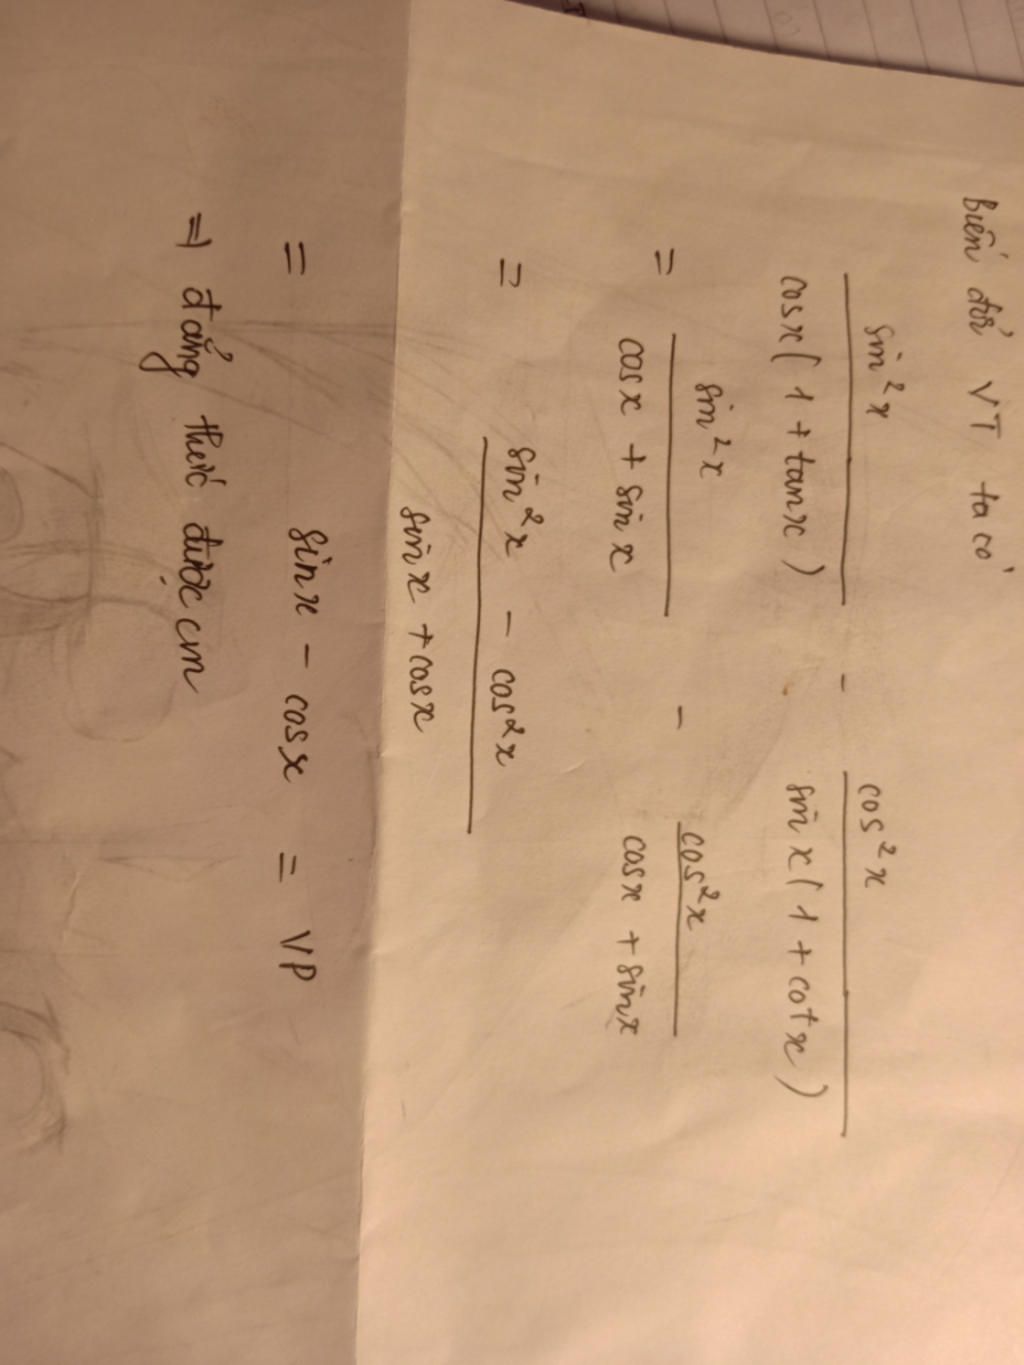 biến đổi VT ta có
sin²x / cosx(1 + tanx) - cos²x / sinx(1 + cotx)
= sin²x / cosx + sinx - cos²x / cosx + sinx
= sin²x - cos²x / sinx + cosx
= sinx - cosx = VP
⇒ đẳng thức được cm